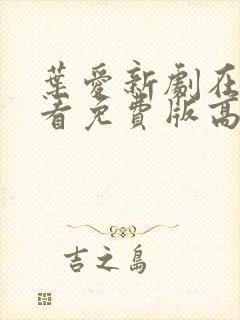 葉愛新劇在
看免費版高
吉之島